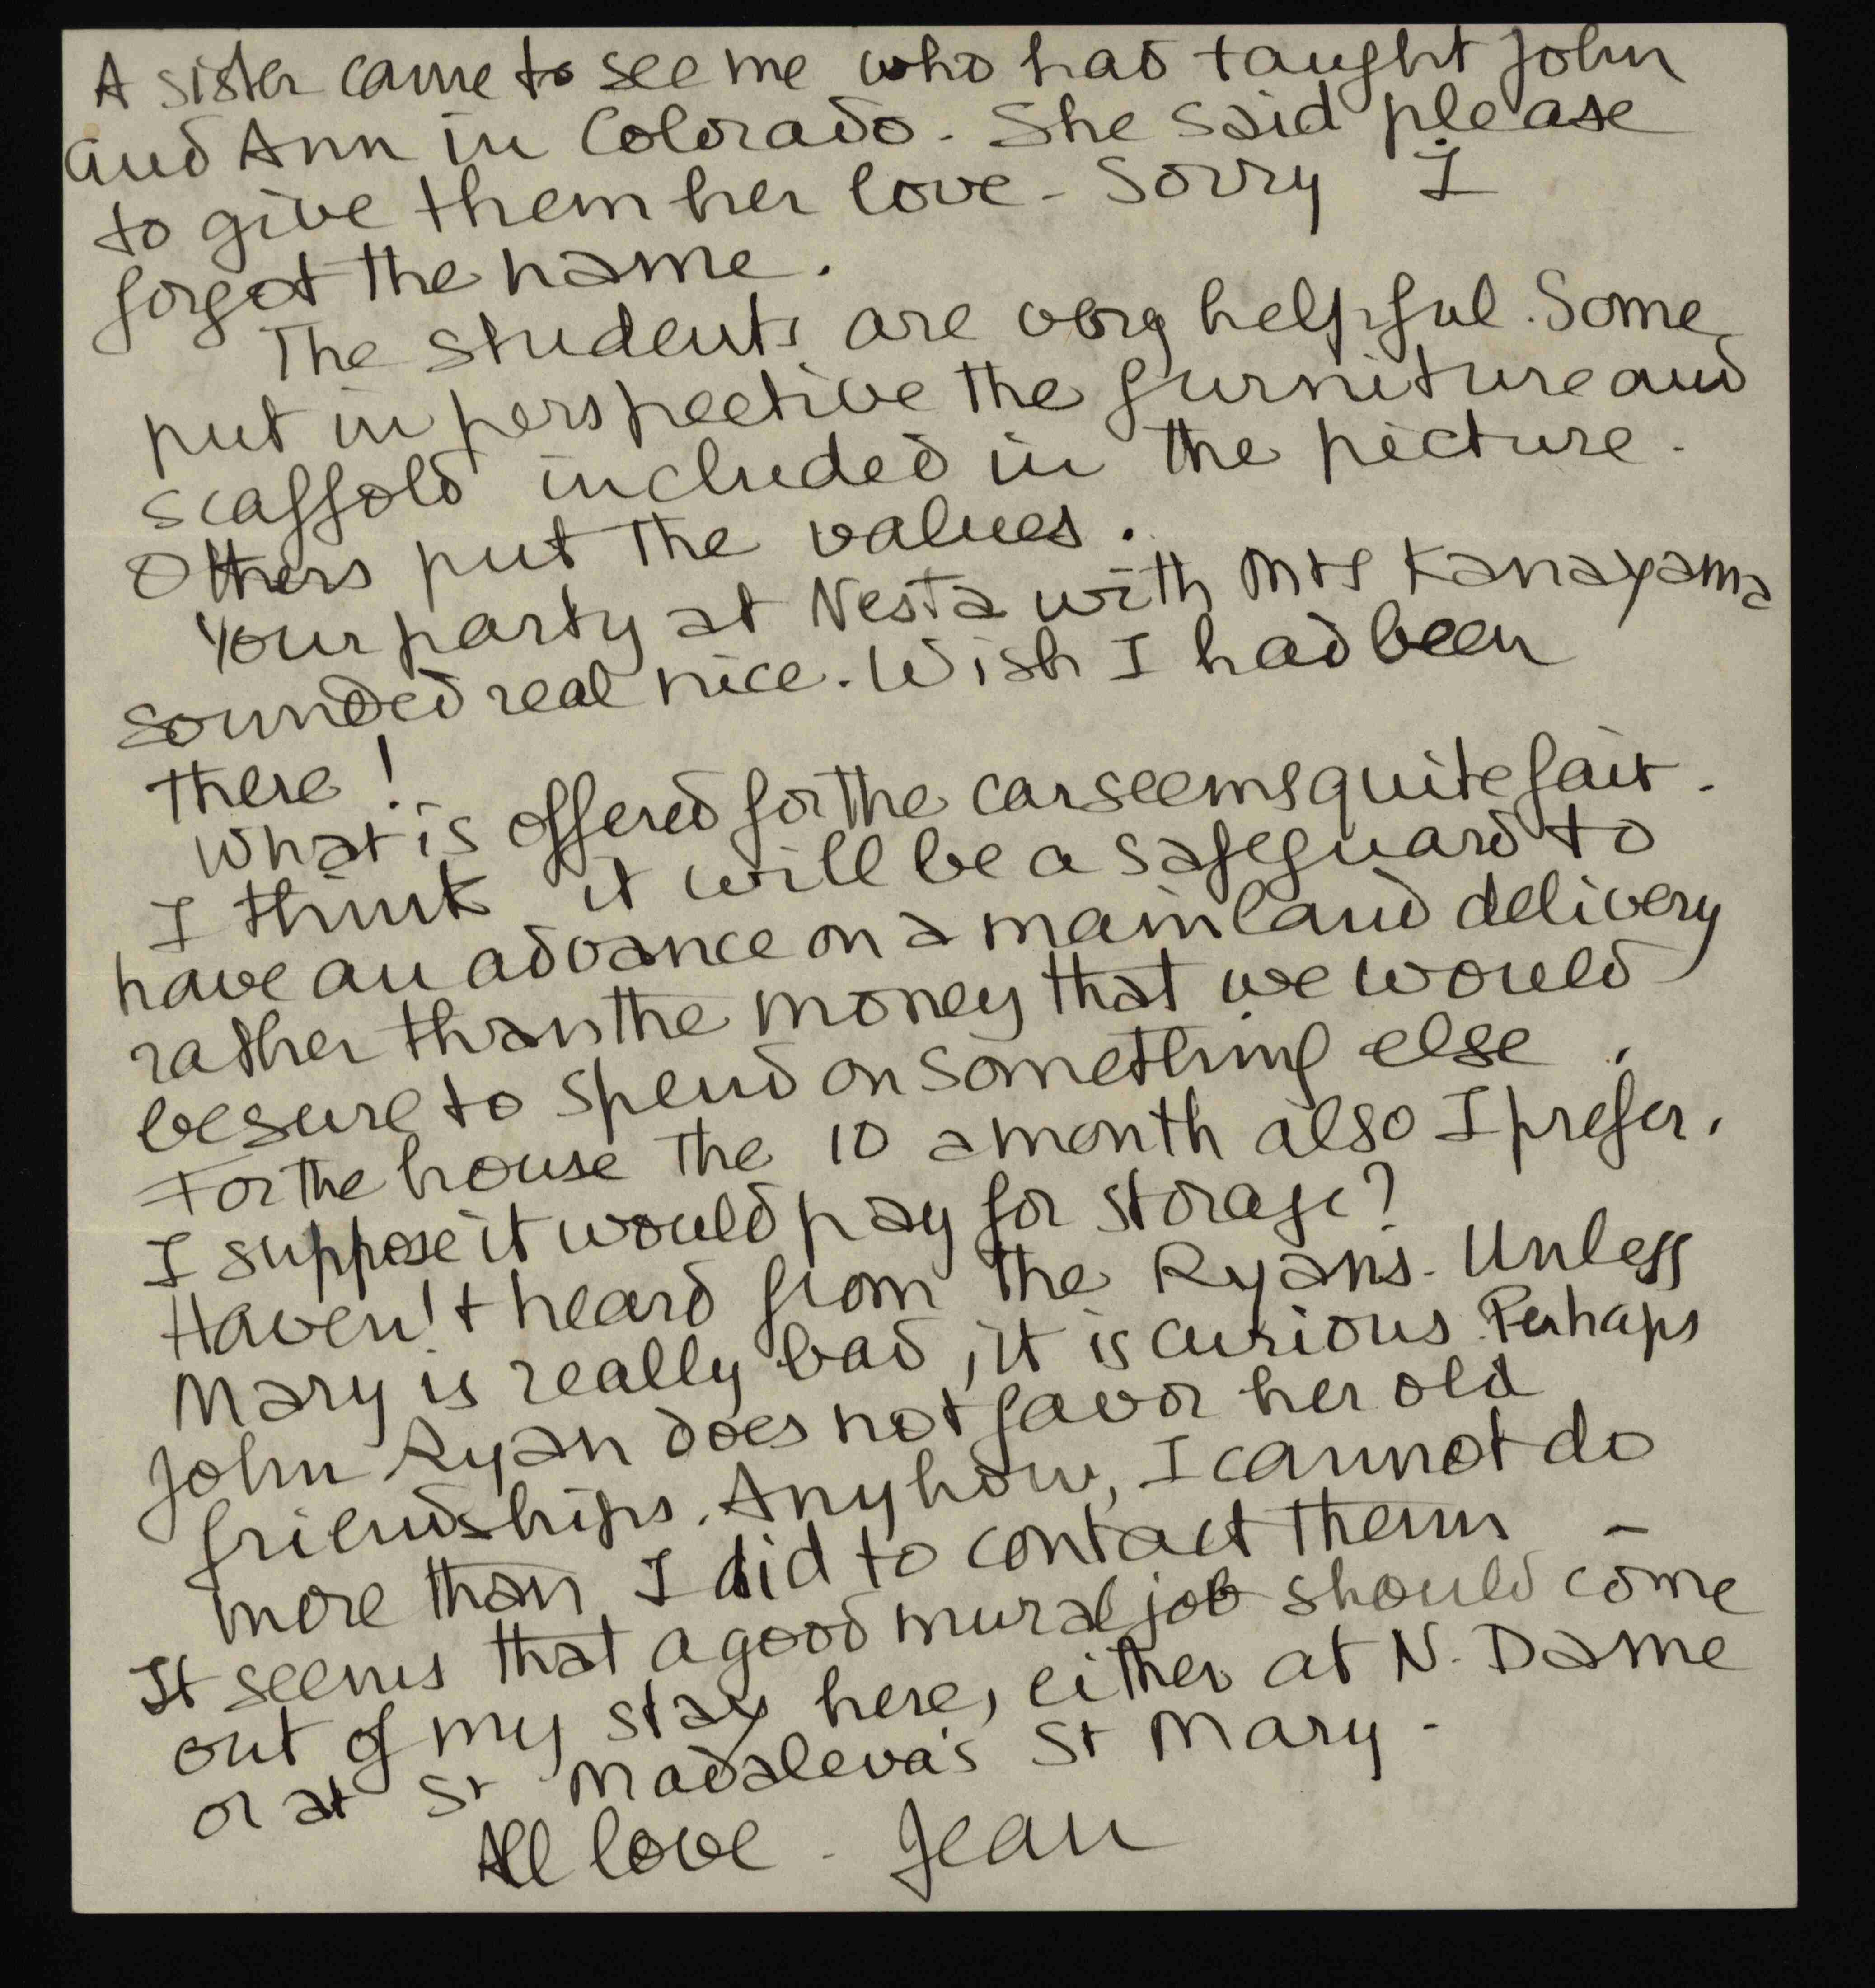 A sister came to see me who had taught John
and Ann in Colorado. She said please
to give them her love - Sorry I
forgot the name.
The students are very helpful. Some
put in perspective the furniture and
scaffold included in the picture.
Others put the values.
Your party at Nesta with Mrs Kanayama
sounded real nice. Wish I had been
there!
What is offered for the car seems quite fair.
I think it will be a safeguard to
have an advance on a mainland delivery
rather than the money that we would
be sure to spend on something else.
For the house the 10 a month also I prefer.
I suppose it would pay for storage?
Haven't heard from the Ryans. Unless
Mary is really bad, it is curious. Perhaps
John Ryan does not favor her old
friendships. Anyhow, I cannot do
more than I did to contact them -
It seems that a good mural job should come
out of my stay here, either at N. Dame
or at St Madaleva's St Mary -
All love - Jean